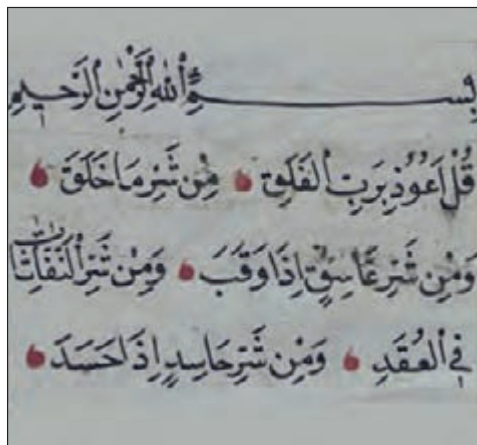 بِسْمِ اللهِ الرَّحْمٰنِ الرَّحِيمِ
قُلْ اَعُوذُ بِرَبِّ الْفَلَقِ مِنْ شَرِّ مَا خَلَقَ
وَمِنْ شَرِّ غَاسِقٍ اِذَا وَقَبَ وَمِنْ شَرِّ النَّفَّاثَاتِ
فِي الْعُقَدِ وَمِنْ شَرِّ حَاسِدٍ اِذَا حَسَدَ